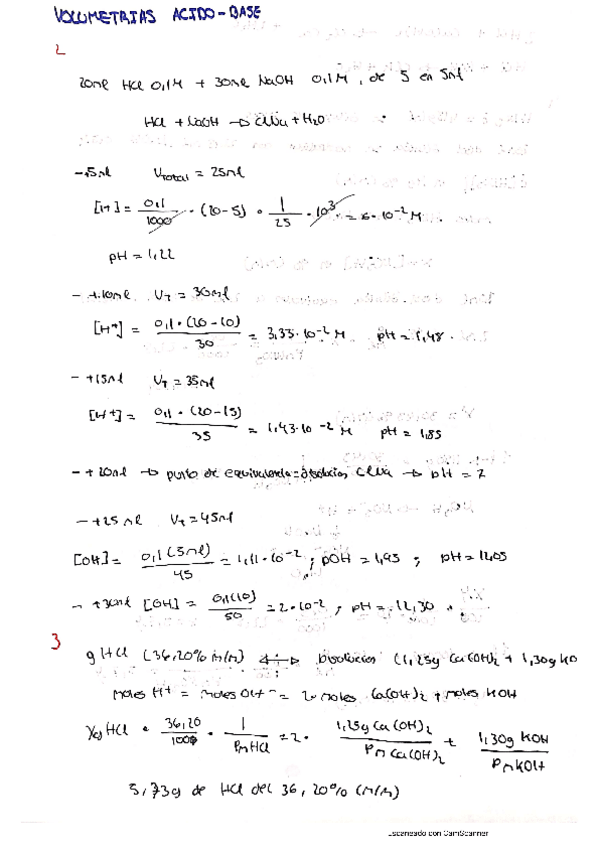 VOLUMETRIAS ACIDO-BASE
2
20ml HCl 0,1M + 30ml NaOH 0,1M, de 5 en 5ml
HCl + NaOH → ClNa + H2O
- +5ml VTotal = 25ml
[H+] = 0,1/1000 · (20-5) · 1/25 · 10^3 = 6·10^-2 M
pH = 1,22
- +10ml VT = 30ml
[H+] = 0,1·(20-10)/30 = 3,33·10^-2 M pH = 1,48
- +15ml VT = 35ml
[H+] = 0,1·(20-15)/35 = 1,43·10^-2 M pH = 1,85
- +20ml → punto de equivalencia = disolución ClNa → pH = 7
- +25ml VT = 45ml
[OH] = 0,1(5ml)/45 = 1,11·10^-2; pOH = 1,95; pH = 12,05
- +30ml [OH] = 0,1(10)/50 = 2·10^-2; pH = 12,30
3
g HCl (36,20% m/m) ↔ Disolución (1,25g Ca(OH)2 + 1,30g KO
moles H+ = moles OH- = 2·moles Ca(OH)2 + moles KOH
Xg HCl · 36,20/100 · 1/PmHCl = 2· 1,25g Ca(OH)2/PmCa(OH)2 + 1,30g KOH/PmKOH
5,73g de HCl del 36,20% (m/m)
Escaneado con CamScanner